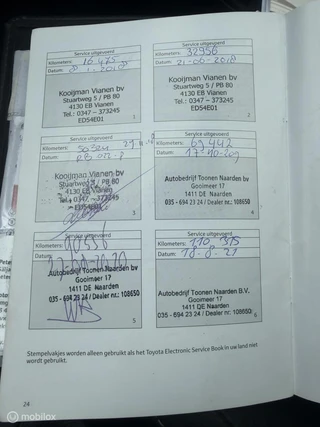 Service uitgevoerd
Kilometers: 16 475
Datum: 8.1.2018
Kooijman Vianen bv
Stuartweg 5 / PB 80
4130 EB Vianen
Tel.: 0347 - 373245
ED54E01
1
Service uitgevoerd
Kilometers: 32956
Datum: 21-06-2018
Kooijman Vianen bv
Stuartweg 5 / PB 80
4130 EB Vianen
Tel.: 0347 - 373245
ED54E01
Service uitgevoerd
Kilometers:
Datum:
Kooijman Vianen bv
Stuartweg 5 / PB 80
4130 EB Vianen
Tel.: 0347 - 373245
ED54E01
3
Service uitgevoerd
Kilometers: 69442
Datum:
Autobedrijf Toonen Naarden bv
Gooimeer 17
1411 DE Naarden
035 - 694 23 24 / Dealer nr.: 108650
4
Service uitgevoerd
Kilometers:
Autobedrijf Toonen Naarden bv
Gooimeer 17
1411 DE Naarden
035 - 694 23 24 / Dealer nr.: 108650
5
Service uitgevoerd
Kilometers: 110 315
Datum: 18-8-21
Autobedrijf Toonen Naarden B.V.
Gooimeer 17
1411 DE Naarden
035 - 694 23 24 / Dealer nr: 108650
Stempelvakjes worden alleen gebruikt als het Toyota Electronic Service Book in uw land niet
wordt gebruikt.
24
© mobilox